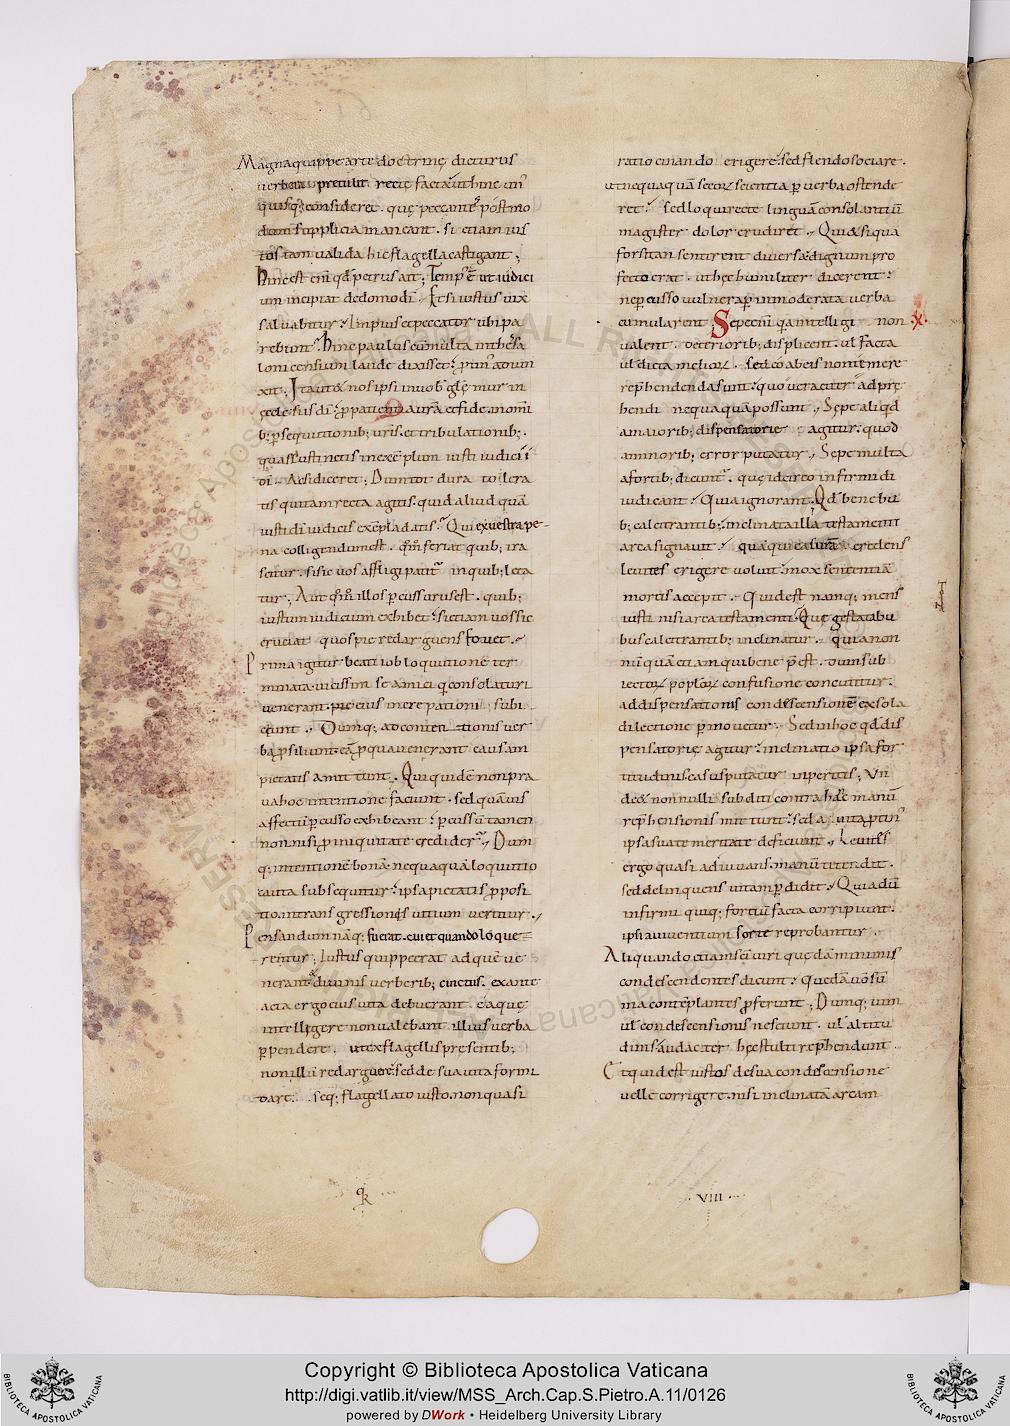 Magna quippe arte doctrinę dicturus
verbera pretulit recte facta. ut hinc un'
quisq; consideret. quę peccantē postmo
dum supplicia maneant. si etiam ius
tos tam valida hic flagella castigant;
Hinc est eni qd petrus ait; Temp' ē ut iudici
um incipiat de domo dī. Et si iustus vix
salvabitur. Impius et peccator ubi pa
rebunt. Hinc paulus cum multa in thesa
lonicensium laude dixisset. ptin' adiun
xit. Ita ut & nos ipsi in uob gl'emur in
ęcclesiis dī. p patientia urā et fide. in omi
b; psequutionib; uris. et tribulationib;.
quas sustinetis in exēplum iusti iudicii
dī. Ac si diceret; Dum tot dura tolera
tis qui tam recta agitis. quid aliud quā
iusti dī iudicii exēpla datis. Qui ex uestra pe-
na colligendum est. qm feriat quib; ira
scitur. si sic vos affligi patit' in quib; leta
tur; Aut qm illos pcussurus est. quib;
iustum iudicium exhibet. si etiam vos sic
cruciat quos pie redarguens fovet.
Prima igitur beati iob loquutione ter
minata. vicissim se amici q consolaturi
venerant. pie eius increpationi subi
ciunt. Dumq; ad contentionis ver
ba psiliunt. eā p qua venerant causam
pietatis amittunt. Qui quidē non pra
va hoc intentione faciunt. sed quāuis
affectū pcusso exhibeant. pcussū tamen
non nisi p iniquitate credider'. Dum
q; intentionē bonā nequaquā loquutio
cauta subsequitur. ipsa pietatis pposi
tio. in transgressionis vitium vertitur.
Pensandum nāq; fuerat. cui et quando loque
rentur; Iustus quippe erat ad quē ve
nerant. & divinis verberib; cinctus. ex ante
acta ergo eius vita debuerant. ea quę
intelligere non valebant illius verba
ppendere. ut ex flagellis presentib;
non illū redarguere. sed de sua vita formi
dare. seq; flagellato iusto. non quasi
ratiocinando erigere. sed flendo sociare.
ut nequaquā se eor scientia p verba ostende
ret. sed loqui recte linguā consolantiū
magister dolor erudiret. Qui & si qua
forsitan sentirent diversa. dignum pro
fecto erat. ut hęc humiliter dicerent.
ne percusso vulnera p inmoderata verba
cumularent; Sepe eni q intelligi non
valent. deteriorib; displicent. ul' facta
ul' dicta melior. sed eo ab eis non temere
rephendenda sunt. quo veraciter adpre
hendi nequaquā possunt. Sepe aliqd
a maiorib; dispensatorie agitur. quod
a minorib; error putatur. Sepe multa
a fortib; dicunt'. quę idcirco infirmi di
iudicant. quia ignorant. Qd bene bu
b; calcitrantib; inclinata illa testamenti
arca signavit. quā qui casurā credens
levites erigere voluit. mox sententiā
mortis accepit. Quid est namq; mens
iusti nisi arca testamenti. Quę gestata bu
bus calcitrantib; inclinatur. quia non
nūquā etiam qui bene pest. dum sub
iector poplor confusione concutitur.
ad dispensationis condescensionē ex sola
dilectione pmovetur. Sed in hoc qd dis
pensatorię agitur. inclinatio ipsa for
titudinis casus putatur inperitis; Un
de & non nulli subditi contra hāc manū
rephensionis mittunt. sed a vita ptin'
ipsa sua temeritate deficiunt. Levites
ergo quasi adiuvans. manū tetendit.
sed delinquens vitam pdidit. Quia dū
infirmi quiq; fortiū facta corripiunt.
ipsi a viventium sorte reprobantur.
Aliquando etiam sci viri quędā minimis
condescendentes dicunt. Quedā vō sū
ma contēplantes pferunt; Dumq; uim
ul' condescensionis nesciunt. ul' altitu
dinis audacter hęc stulti rephendunt.
Et quid est iustos de sua condescensione
velle corrigere. nisi inclinatā arcam
VIII
Copyright © Biblioteca Apostolica Vaticana
http://digi.vatlib.it/view/MSS_Arch.Cap.S.Pietro.A.11/0126
powered by DWork • Heidelberg University Library